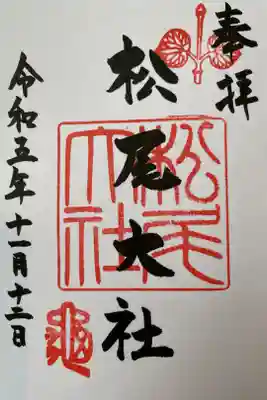 奉拝
松尾大社
松尾大社
令和五年十一月十二日